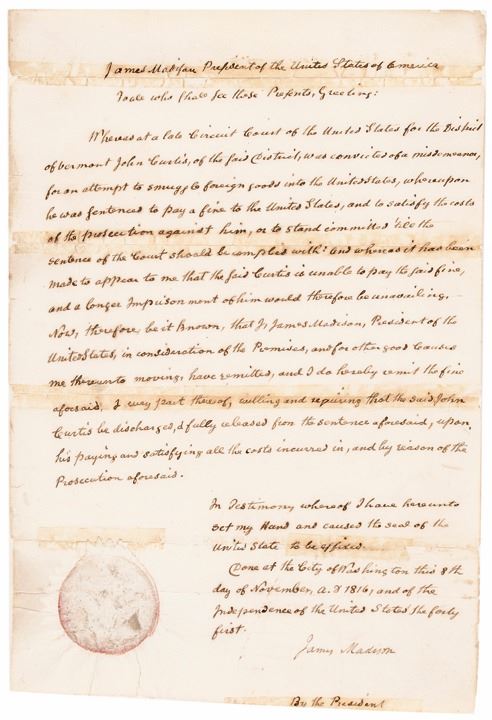 James Madison President of the United States of America
To all who shall see these Presents, Greeting:
Whereas at a late Circuit Court of the United States for the District
of Vermont John Curtis, of the said District, was convicted of a misdemeanor,
for an attempt to smuggle foreign goods into the United States, whereupon
he was sentenced to pay a fine to the United States, and to satisfy the costs
of the prosecution against him, or to stand committed till the
sentence of the Court should be complied with: And whereas it has been
made to appear to me that the said Curtis is unable to pay the said fine,
and a longer Imprisonment of him would therefore be unavailing.
Now, therefore, be it known, that I, James Madison, President of the
United States, in consideration of the Premises, and for other good Causes
me thereunto moving, have remitted, and I do hereby remit the fine
aforesaid, & every part thereof, willing and requiring that the said John
Curtis be discharged, & fully released from the sentence aforesaid, upon
his paying and satisfying all the costs incurred in, and by reason of the
Prosecution aforesaid.
In Testimony whereof I have hereunto
set my Hand and caused the seal of the
United State to be affixed.
Done at the City of Washington this 8th
day of November, A.D 1816, and of the
Independence of the United States the forty
first.
James Madison
By the President